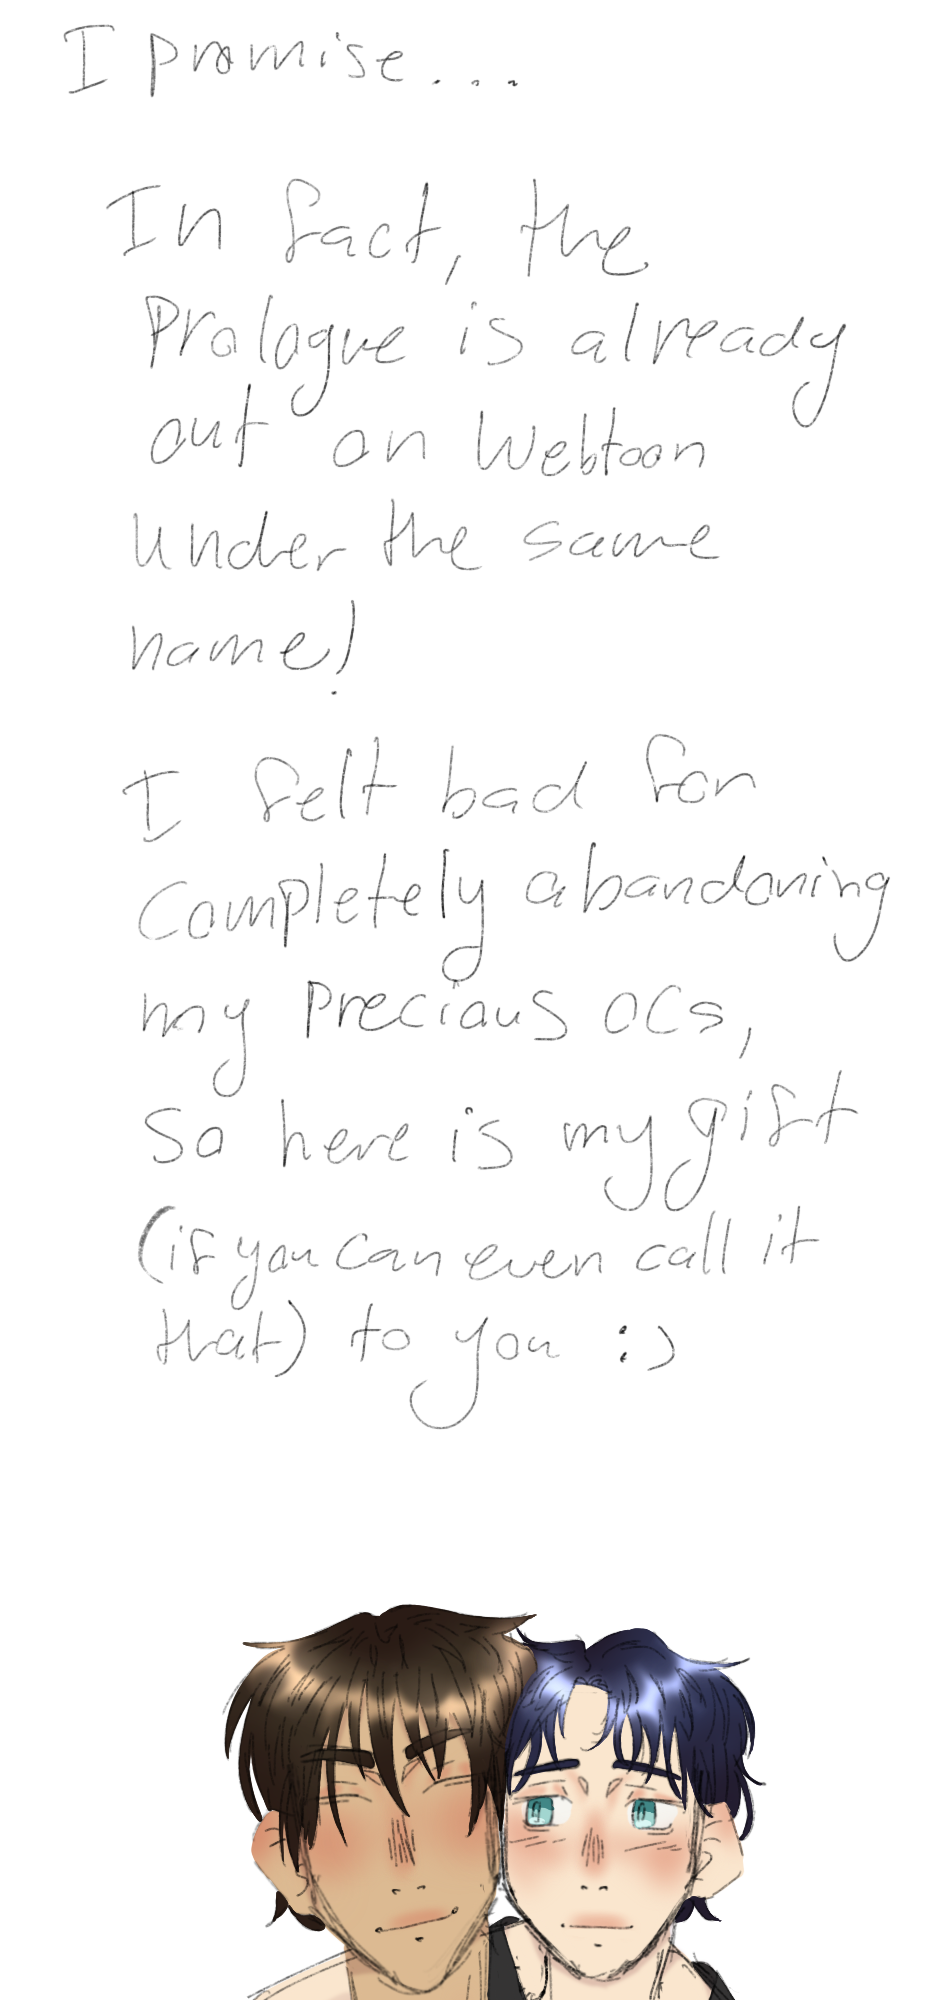 I promise...
In fact, the
Prologue is already
out on Webtoon
under the same
name!
I felt bad for
completely abandoning
my precious OCs,
So here is my gift
(if you can even call it
that) to you :)